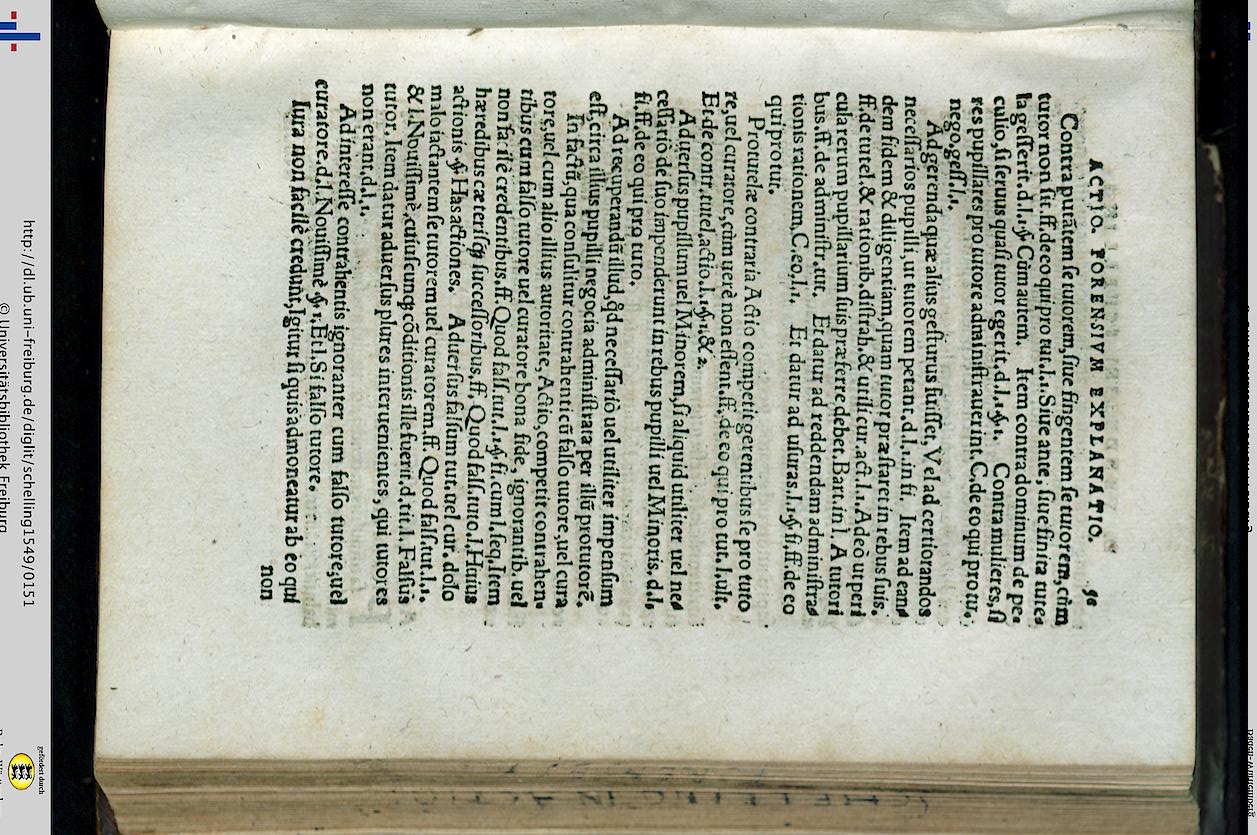 ACTIO. FORENSIVM EXPLANATIO. 56
Contra putātem se tutorem, siue fingentem se tutorem, cùm
tutor non sit. ff. de eo qui pro tut. l. 1. Siue ante, siue finita tute⸗
la gesserit. d. l. 1. §. Cùm autem. Item contra dominum de pe⸗
culio, si seruus quasi tutor egerit. d. l. 1. §. 1. Contra mulieres, si
res pupillares pro tutore administrauerint. C. de eo qui pro tu.
nego. gess. l. 1.
Ad gerenda quæ alius gesturus fuisset, Vel ad certiorandos
necessarios pupilli, ut tutorem petant. d. l. 1. in fi. Item ad ean⸗
dem fidem & diligentiam, quam tutor præstaret in rebus suis.
ff. de tutel. & rationib. distrah. & utili cur. act. l. 1. Adeò ut peri
cula rerum pupillarium suis præferre debet. Bart. in l. A tutori
bus. ff. de administr. tut. Et datur ad reddendam administra⸗
tionis rationem. C. eo. l. 1. Et datur ad usuras. l. 1. §. fi. ff. de eo
qui pro tut.
Protutelæ contraria Actio competit gerentibus se pro tuto
re, uel curatore, cùm uerè non essent. ff. de eo qui pro tut. l. ult.
Et de contr. tutel. actio. l. 1. §. 1. & 2.
Aduersus pupillum uel Minorem, si aliquid utiliter uel ne⸗
cessariò de suo impenderunt in rebus pupilli uel Minoris. d. l.
fi. ff. de eo qui pro tuto.
Ad recuperandū illud, qđ necessariò uel utiliter impensum
est, circa illius pupilli negocia administrata per illū protutorē.
In factū, qua consulitur contrahenti cū falso tutore, uel cura
tore, uel cum alio illius autoritate, Actio, competit contrahen⸗
tibus cum falso tutore uel curatore bona fide, ignorantib. uel
non facilè credentibus. ff. Quod fals. tut. l. 1. §. fi. cum l. seq. Item
hæredibus cæterisq́ successoribus. ff. Quod fals. tuto. l. Huius
actionis §. Has actiones. Aduersus falsum tut. uel cur. dolo
malo iactantem se tutorem uel curatorem. ff. Quod fals. tut. l. 1.
& l. Nouissimè, cuiuscunq; cōditionis ille fuerit. d. tit. l. Falsus
tutor. Item datur aduersus plures interuenientes, qui tutores
non erant. d. l. 1.
Ad interesse contrahentis ignoranter cum falso tutore, uel
curatore. d. l. Nouissimè §. 1. Et l. Si falso tutore.
Iura non facilè credunt, Igitur si quis admoneatur ab eo qui
non
http://dl.ub.uni-freiburg.de/diglit/schelling1549/0151
© Universitätsbibliothek Freiburg
gefördert durch